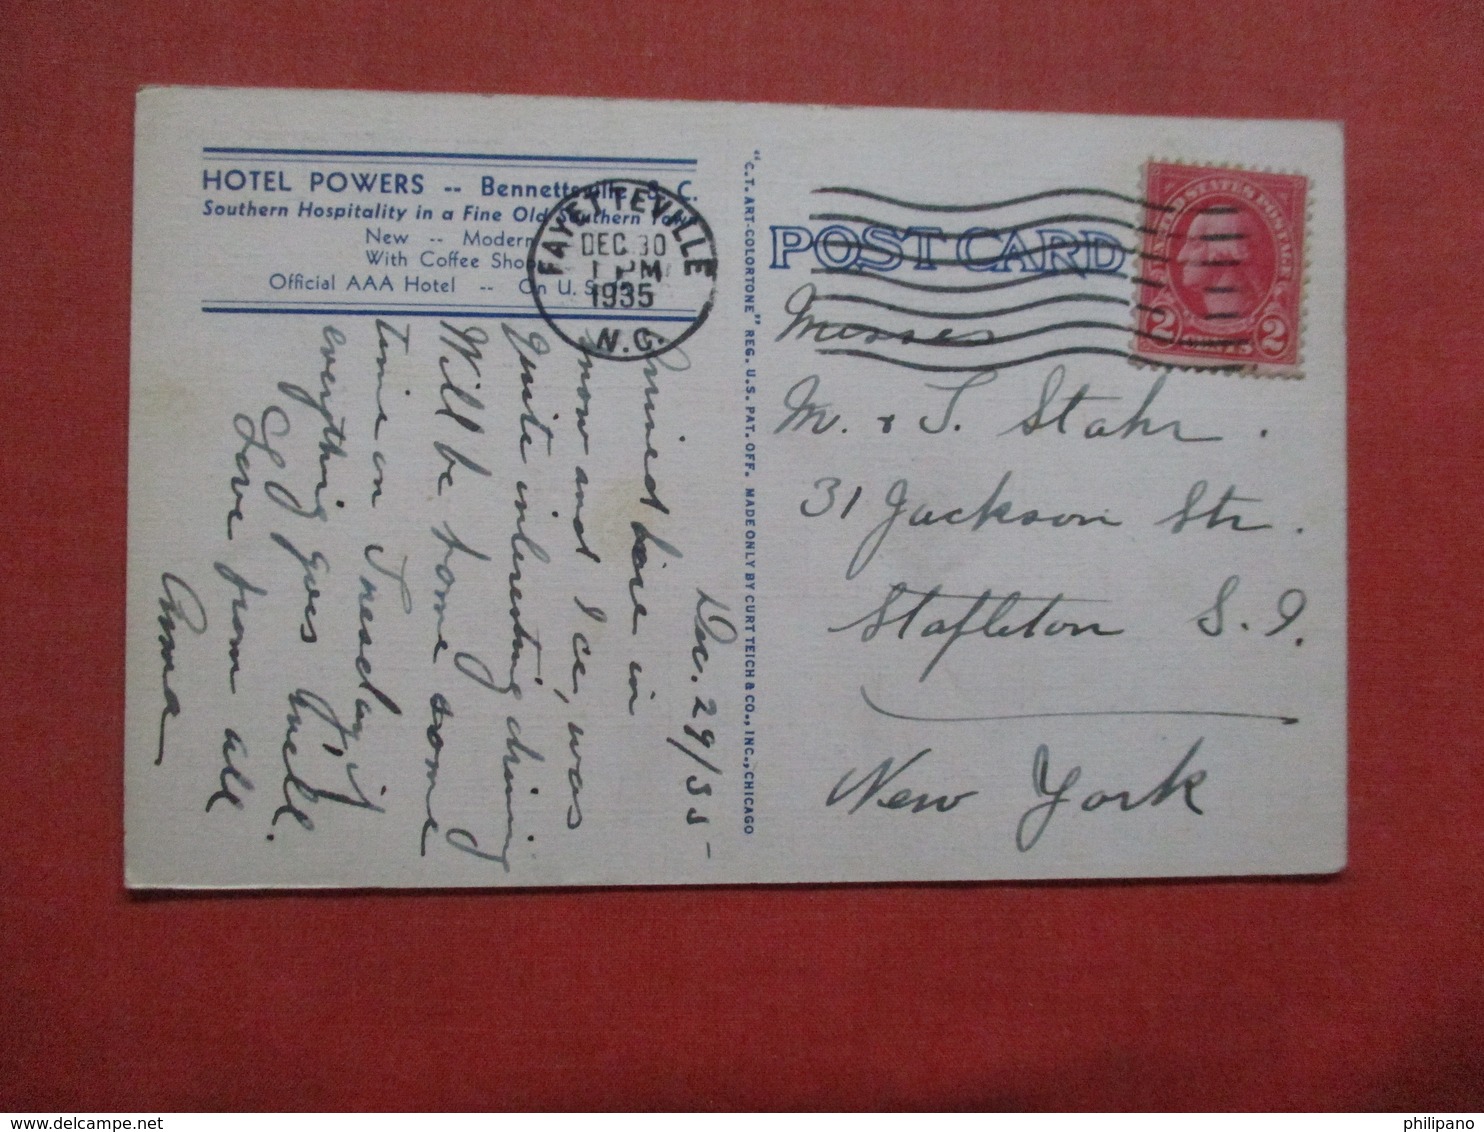 HOTEL POWERS -- Bennettsville, S. C.
Southern Hospitality in a Fine Old Southern Town
New -- Modern
With Coffee Shop
Official AAA Hotel -- On U. S.
FAYETTEVILLE
DEC 30
1 PM
1935
N.C.
Dec. 29/35
Arrived here in
snow and Ice, was
quite interesting driving
Will be home some
time on Tuesday if
everything goes well.
Love from all
Anna
"C.T. ART-COLORTONE" REG. U.S. PAT. OFF. MADE ONLY BY CURT TEICH & CO., INC., CHICAGO
POST CARD
UNITED STATES POSTAGE
2 CENTS 2
Misses
M. & T. Stahr.
31 Jackson Str.
Stapleton S. I.
New York
delcampe.net
philipano